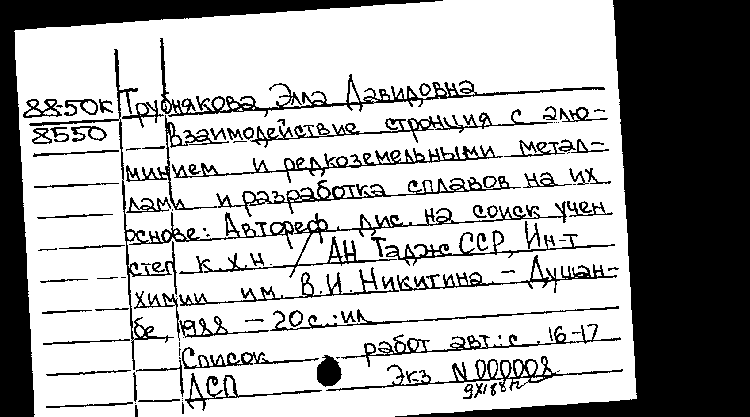 88-50к Трубнякова, Элла Давидовна
8550 Взаимодействие стронция с алю-
минием и редкоземельными метал-
лами и разработка сплавов на их
основе: Автореф. дис. на соиск учен
степ к.х.н. / АН ТаджССР, Ин-т
химии им. В.И. Никитина. – Душан-
бе, 1988 – 20 с.: ил
Список работ авт.: с. 16-17
ДСП Экз N 000008